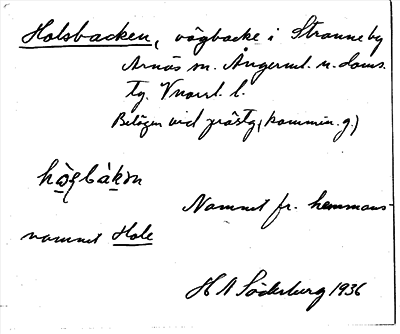 Holsbacken, vägbacke i Stranneby
Arnäs sn. Ångerml. n. doms.
tg. V norrl. l.
Belägen vid prästg. (kommin. g.)
Namnet fr. hemmans-
namnet Hole
H A Söderburg 1936